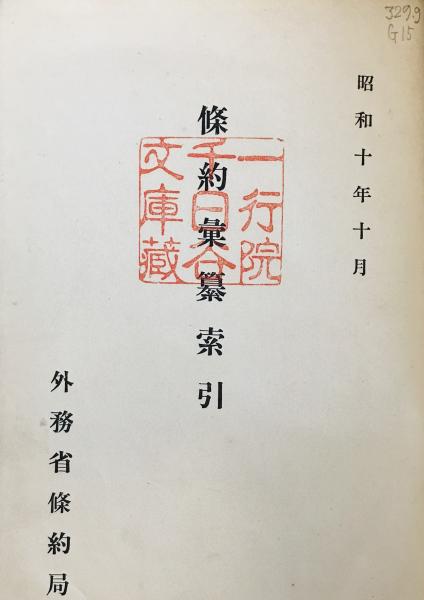 329.9
G15
昭和十年十月
條約彙纂索引
一行院
千日谷
文庫藏
外務省條約局